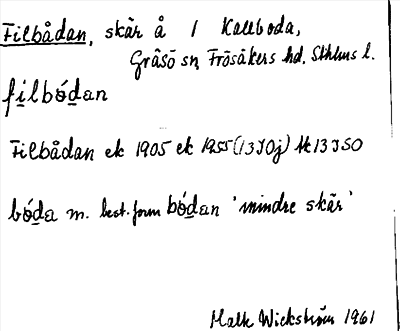 Filbådan, skär å 1 Kallboda,
Gräsö sn Frösåkers hd. Sthlms l.
filbódan
Filbådan ek 1905 ek 1955 (13J0j) tk 13J50
bóda m. best. form bódan 'mindre skär'
Wickström 1961